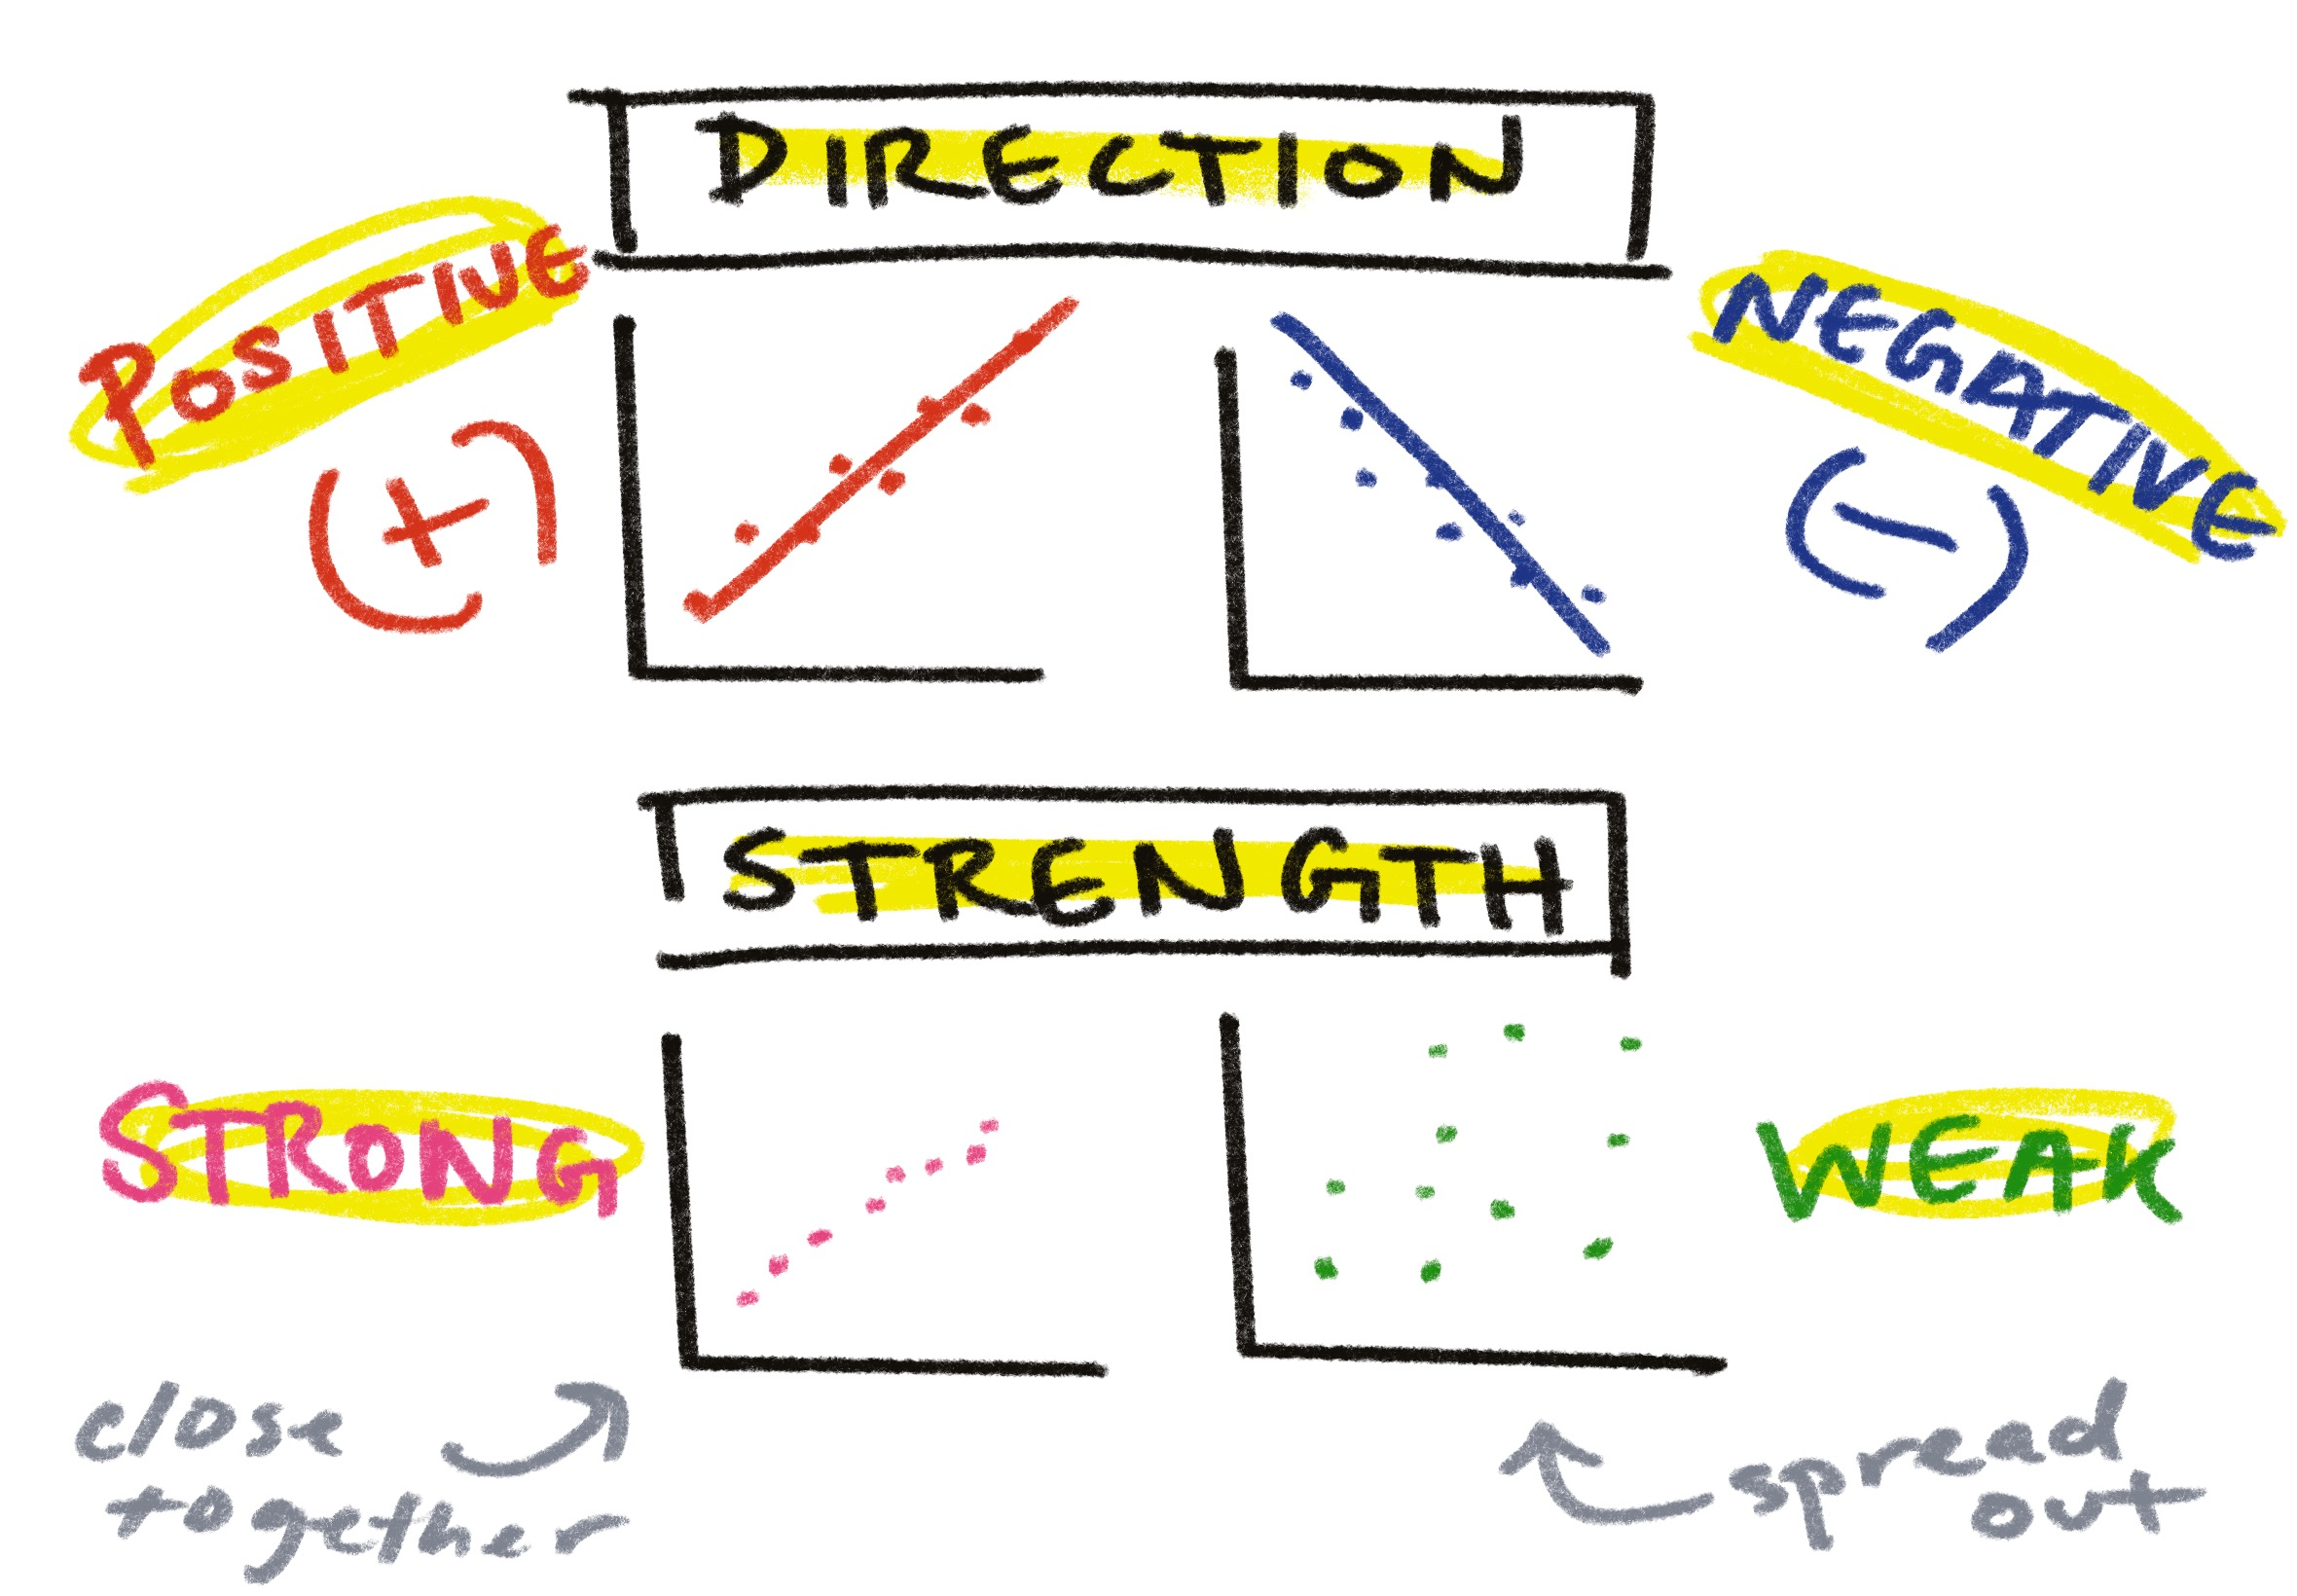 DIRECTION
POSITIVE
(+)
NEGATIVE
(−)
STRENGTH
STRONG
WEAK
close
together
spread
out